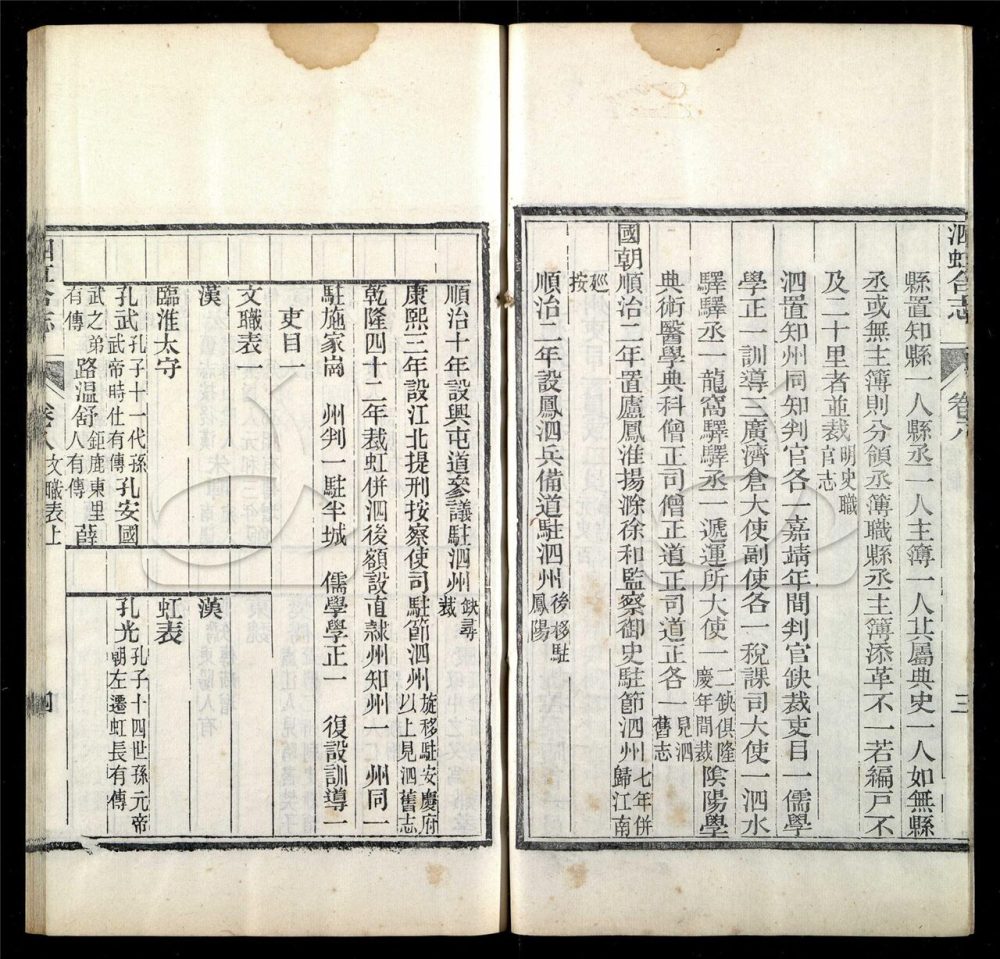 泗虹合志
卷八
三
縣置知縣一人縣丞一人主簿一人其屬典史一人如無縣
丞或無主簿則分領丞簿職縣丞主簿添革不一若編戸不
及二十里者並裁明史職官志
泗置知州同知判官各一嘉靖年間判官缺裁吏目一儒學
學正一訓導三廣濟倉大使副使各一稅課司大使一泗水
驛驛丞一龍窩驛驛丞一遞運所大使一二缺俱隆慶年間裁陰陽學
典術醫學典科僧正司僧正道正司道正各一見泗舊志
國朝順治二年置廬鳳淮揚滁徐和監察御史駐節泗州七年併歸江南
巡按
順治二年設鳳泗兵備道駐泗州後移駐鳳陽
順治十年設興屯道參議駐泗州缺尋裁
康熙三年設江北提刑按察使司駐節泗州旋移駐安慶府以上見泗舊志
乾隆四十二年裁虹併泗後額設直隷州知州一 州同一
駐施家崗 州判一駐半城 儒學學正一 復設訓導一
吏目一
文職表一
漢
臨淮太守
孔武孔子十一代孫武帝時仕有傳孔安國
武之弟有傳路溫舒鉅鹿東里人有傳薛
漢
虹表
孔光孔子十四世孫元帝朝左遷虹長有傳
卷八文職表上
四